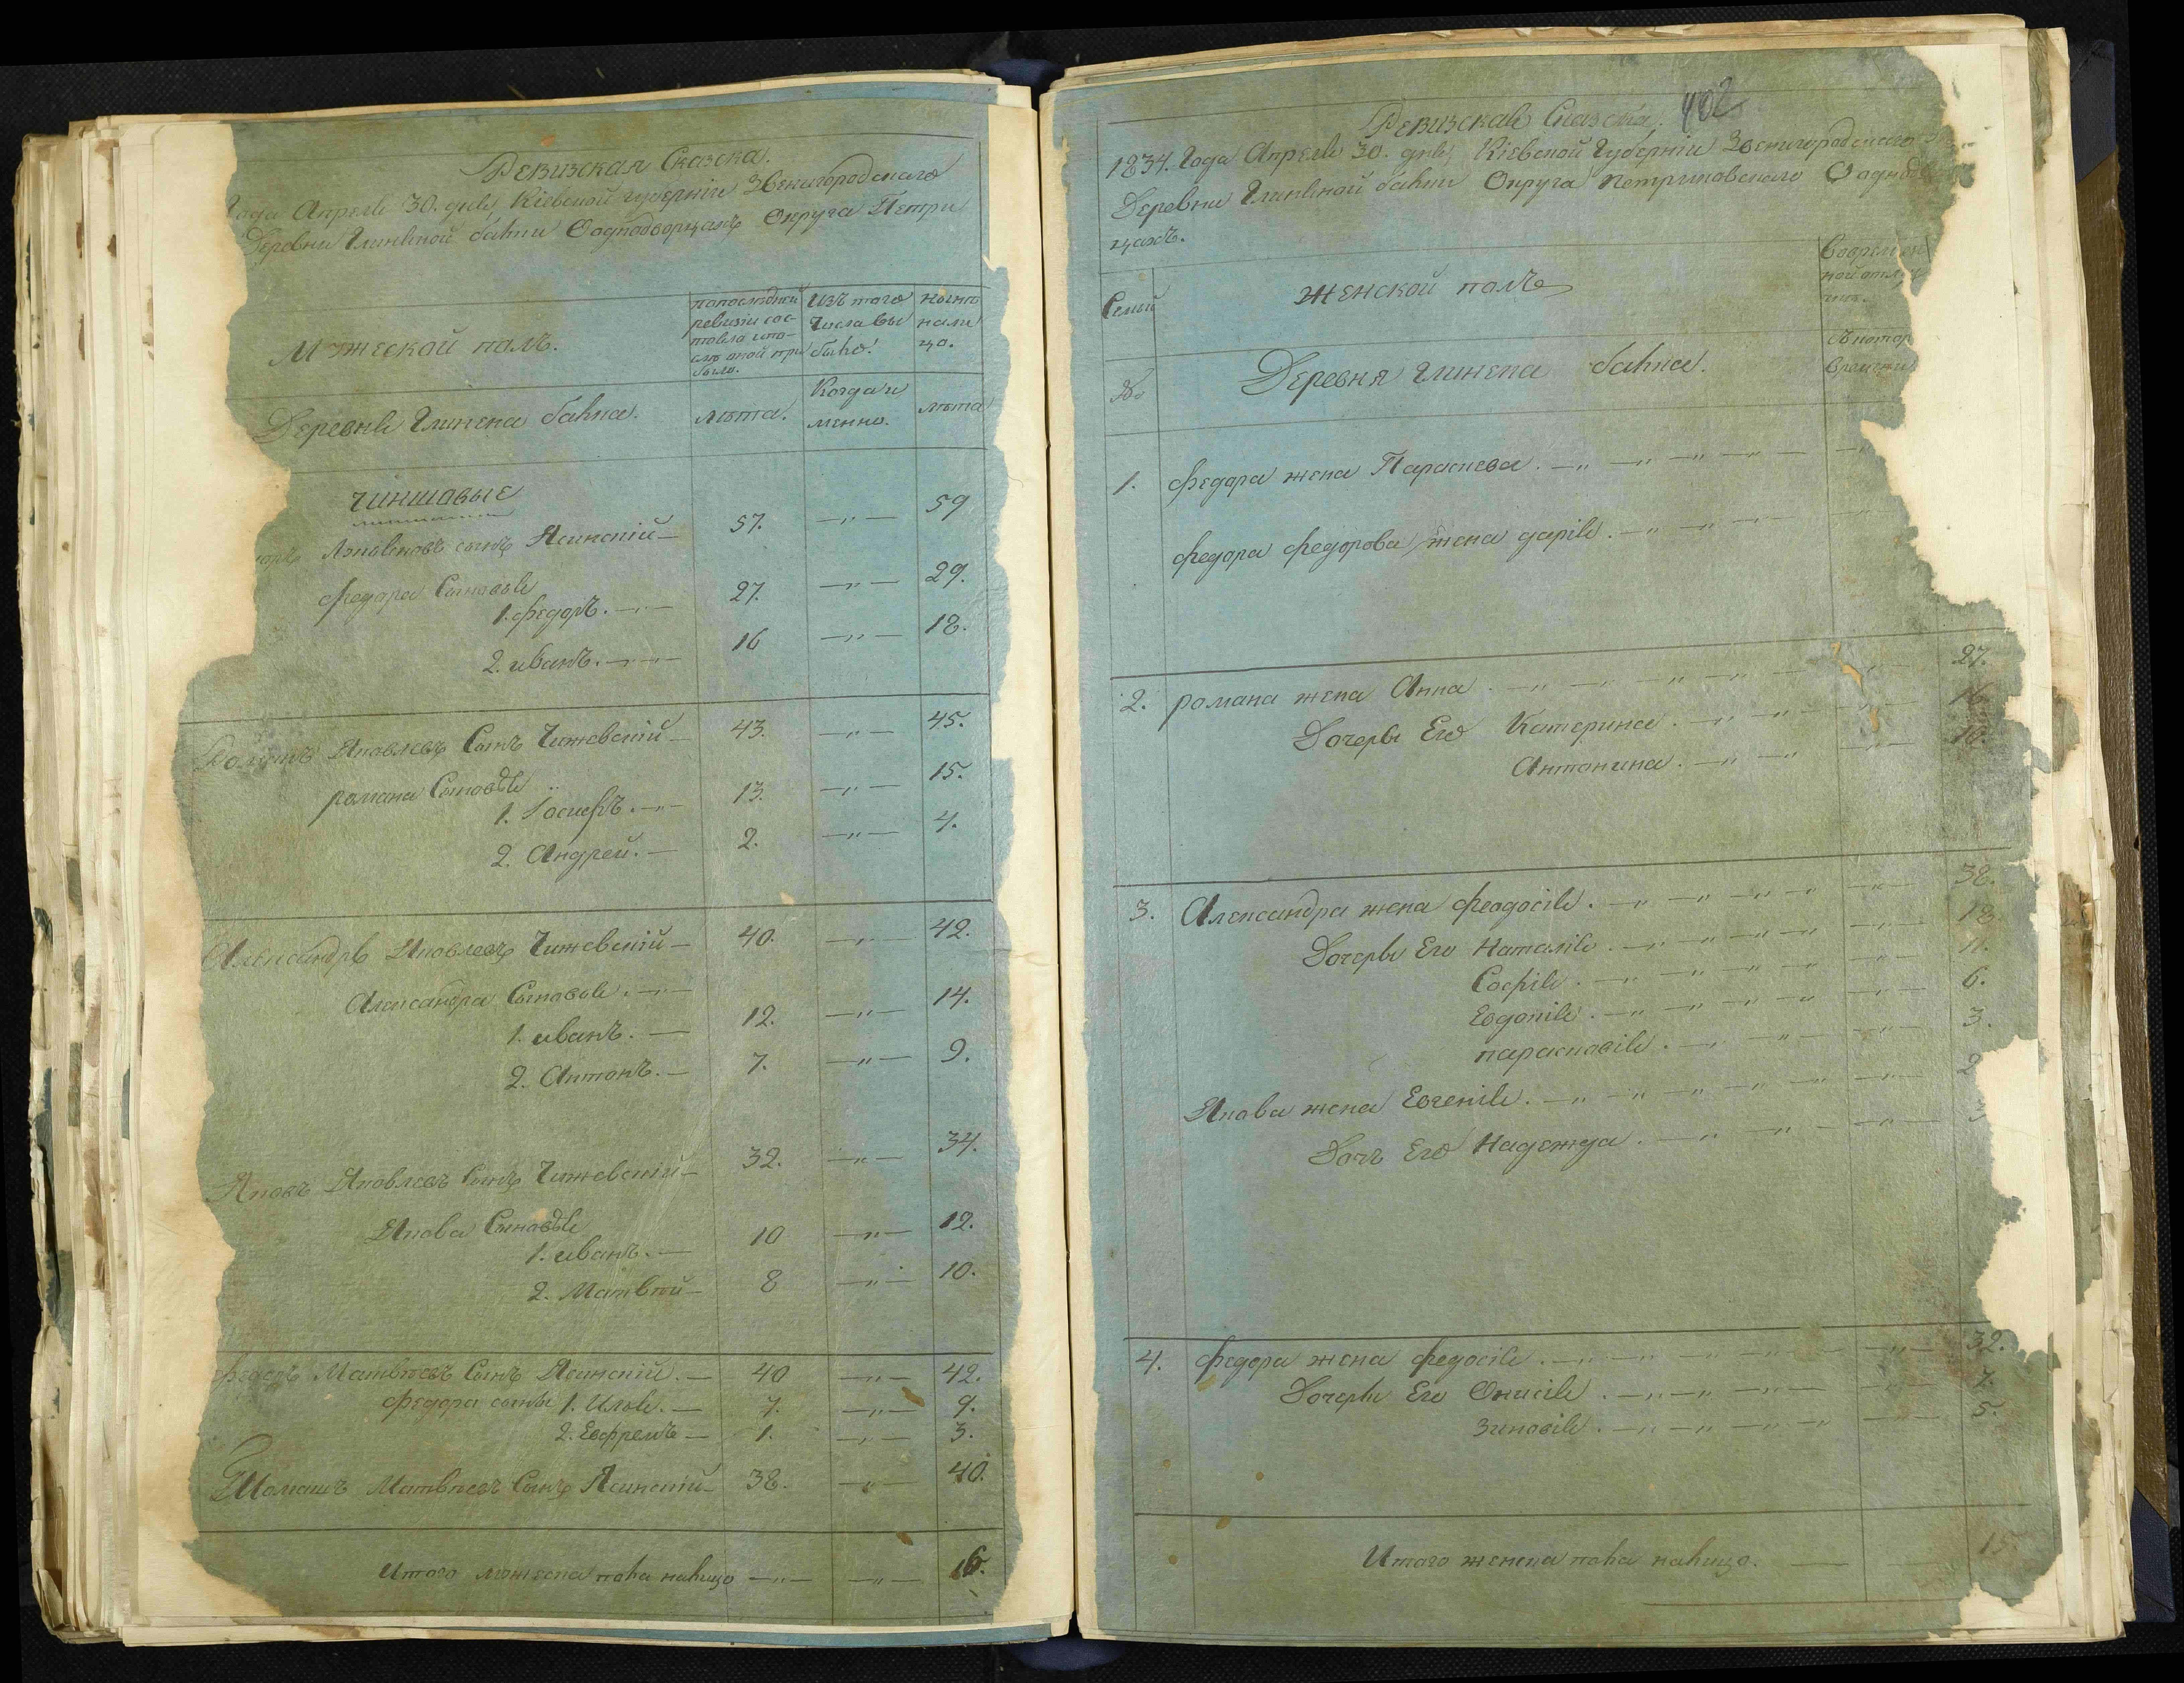 Ревизская Сказка.
Года Апреля 30. дня Кіевской губерніи Звенигородскаго
Деревни Глиняной балки Однодворцахъ Округа Петри
Мужеской полъ.
попоследней ревизіи сос-
тояло ипо-
сле оной при
было.
Изъ того
числа вы
было.
ныне
нали
цо.
Деревня Глинена балка.
лета.
Когда и
менно.
лета
чиншовые
Лукьяновъ сынъ Ясинскій — 57. —„— 59
Федора Сыновья
1. Федоръ. 27. —„— 29.
2. иванъ. 16 —„— 18.
Романъ Яковлевъ Сынъ Чижевскій — 43. —„— 45.
романа Сыновья
1. Іосифъ. 13. —„— 15.
2. Андрей. — 2. —„— 4.
Александръ Яковлевъ Чижевскій — 40. —„— 42.
Александра Сыновья.
1. иванъ. — 12. —„— 14.
2. Антонъ. — 7. —„— 9.
Яковъ Яковлевъ Сынъ Чижевскій — 32. —„— 34.
Якова Сыновья
1. иванъ. — 10 —„— 12.
2. Матвей — 8 —„— 10.
Федоръ Матвеевъ Сынъ Ясинскій. — 40 —„— 42.
Федора сыны 1. Илья. — 7. —„— 9.
2. Евфремъ — 1. —„— 3.
Матвеевъ Сынъ Ясинскій — 38. —„— 40.
Итого мужеска пола налицо —„— —„— 16.
402
Ревизская Сказка.
1834. Года Апреля 30. дня Кіевской Губерніи Звенигородскаго
Деревни Глиняной балки Округа Петриковскаго Однодв
цахъ.
Семьи
Женской полъ
Вовремен
ной отлу
Деревня Глинена балка.
Съ котор
времени
1. Федора жена Параскева.
Федора Федорова жена дарія.
2. романа жена Анна. 27.
Дочеры Его Катерина. 16
Антонина. 10.
3. Александра жена Феодосія. 38.
Дочеры Его Наталія. 18.
Софія. 11.
Евдокія. 6.
парасковія. 3.
Якова жена Евгенія. 2
Дочь Его Надежда. 3
4. Федора жена Федосія. 32.
Дочеры Его Онисія. 7.
Зиновія. 5.
Итого женска пола налицо. — 15.